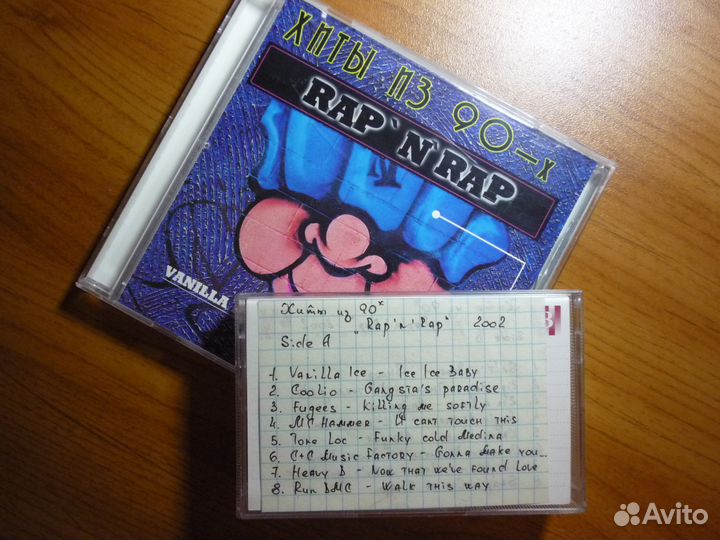 Хиты из 90-х
RAP`N`RAP
VANILLA
Хиты из 90х
"Rap'n'Rap" 2002
Side A
1. Vanilla Ice - Ice Ice Baby
2. Coolio - Gangsta's paradise
3. Fugees - Killing me softly
4. MC Hammer - U cant touch this
5. Tone Loc - Funky cold Medina
6. C+C Music Factory - Gonna Make you...
7. Heavy D - Now that we've found love
8. Run DMC - Walk this way
Avito